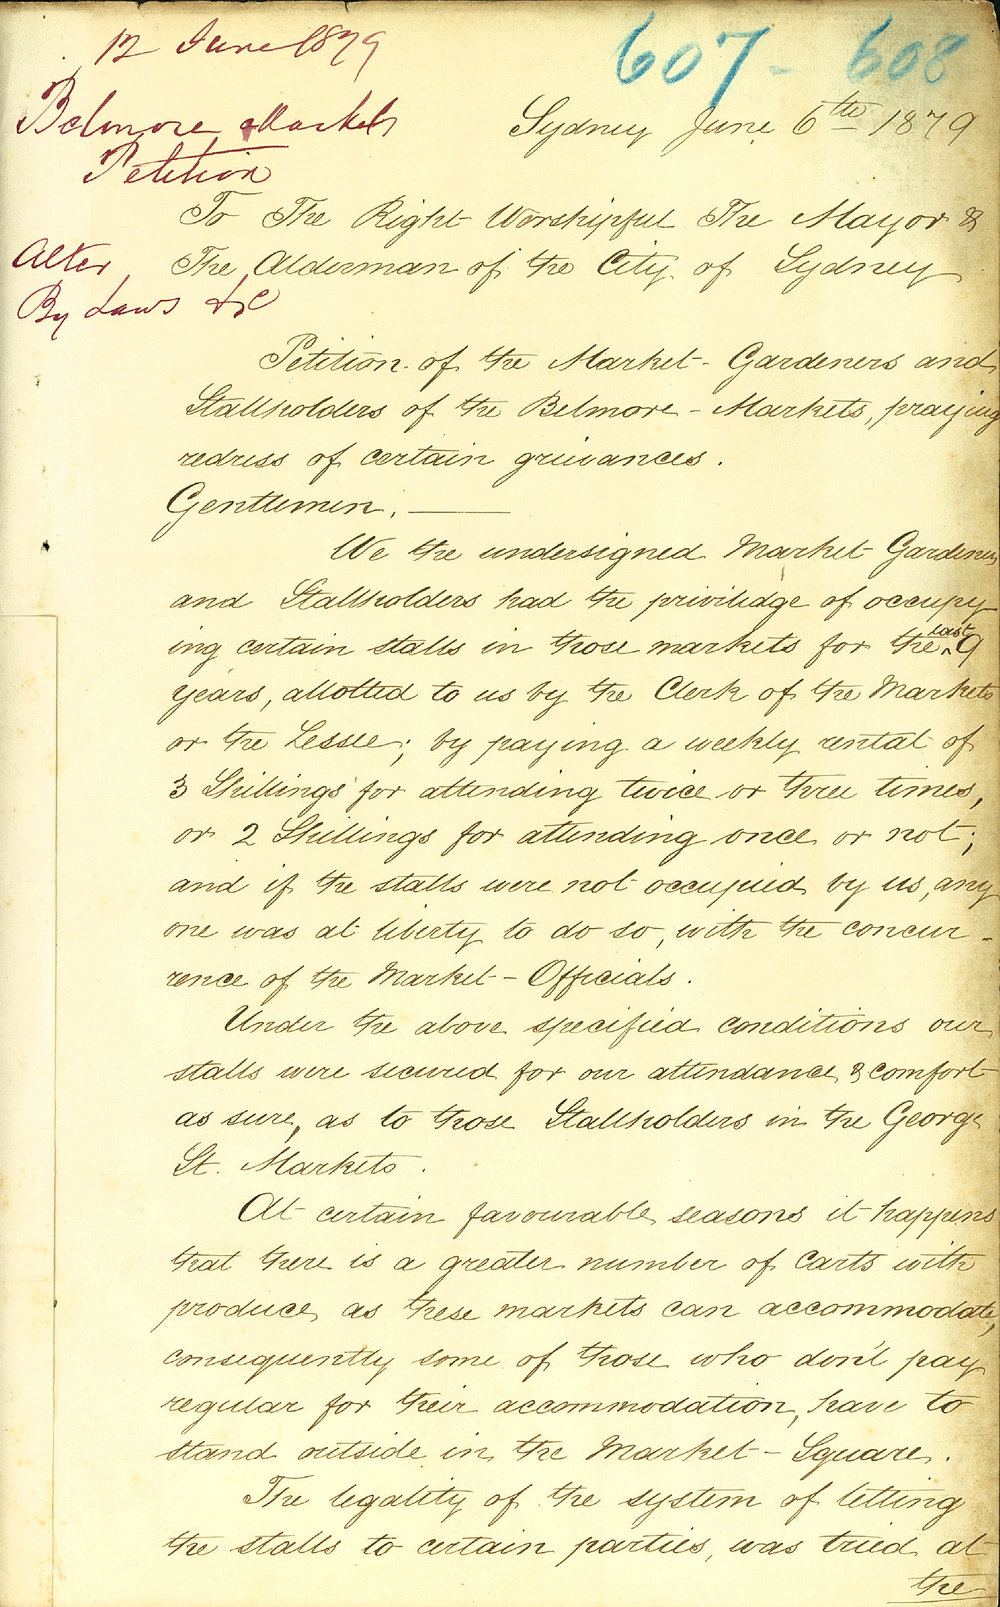 12 June 1879
607 - 608
Belmore Markets
Petition
Sydney June 6th 1879
To The Right Worshipful The Mayor &
The Alderman of the City of Sydney
Alter
By Laws &c
Petition of the Market-Gardeners and
Stallholders of the Belmore-Markets, praying
redress of certain grievances.
Gentlemen,
We the undersigned Market Gardeners
and Stallholders had the priviledge of occupy
ing certain stalls in those markets for the last 9
years, allotted to us by the Clerk of the Markets
or the Lessee; by paying a weekly rental of
3 Shillings for attending twice or three times,
or 2 Shillings for attending once or not;
and if the stalls were not occupied by us, any
one was at liberty to do so, with the concur-
rence of the Market-Officials.
Under the above specified conditions our
stalls were secured for our attendance & comfort
as sure, as to those Stallholders in the George
St. Markets.
At certain favourable seasons it happens
that there is a greater number of Carts with
produce as these markets can accommodate,
consequently some of those who don't pay
regular for their accommodation, have to
stand outside in the Market-Square.
The legality of the system of letting
the stalls to certain parties, was tried at
the